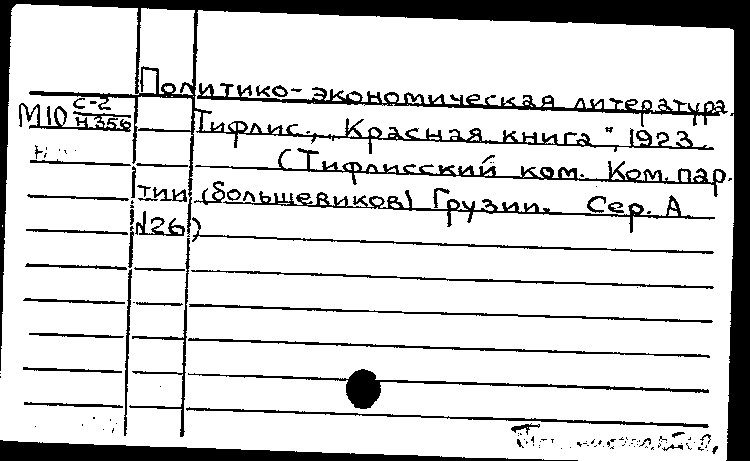 Политико-экономическая литература.
М10 С-2
Н356 Тифлис, „Красная книга", 1923.
(Тифлисский ком. Ком. пар-
тии (большевиков) Грузии. Сер. А
№26)